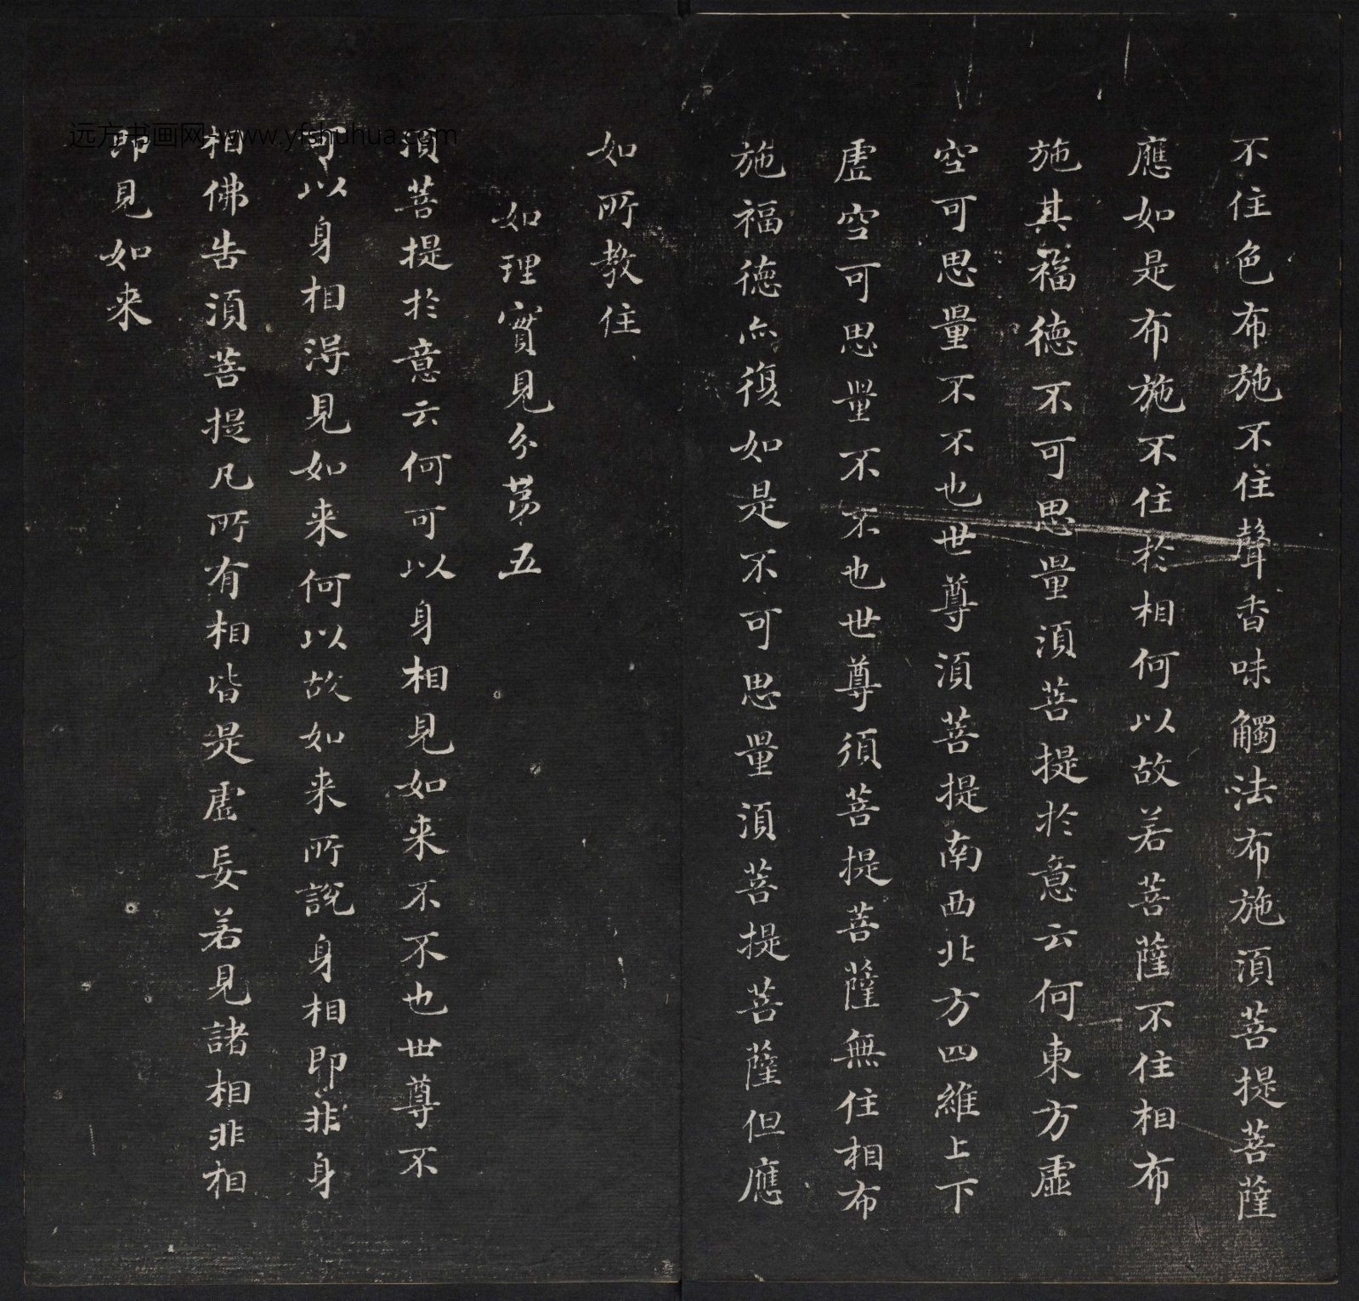 不住色布施不住聲香味觸法布施須菩提菩薩
應如是布施不住於相何以故若菩薩不住相布
施其福德不可思量須菩提於意云何東方虛
空可思量不不也世尊須菩提南西北方四維上下
虛空可思量不不也世尊須菩提菩薩無住相布
施福德亦復如是不可思量須菩提菩薩但應
如所教住
如理實見分第五
須菩提於意云何可以身相見如来不不也世尊不
可以身相得見如来何以故如来所說身相即非身
相佛告須菩提凡所有相皆是虛妄若見諸相非相
即見如来
远方书画网 www.yfshuhua.com